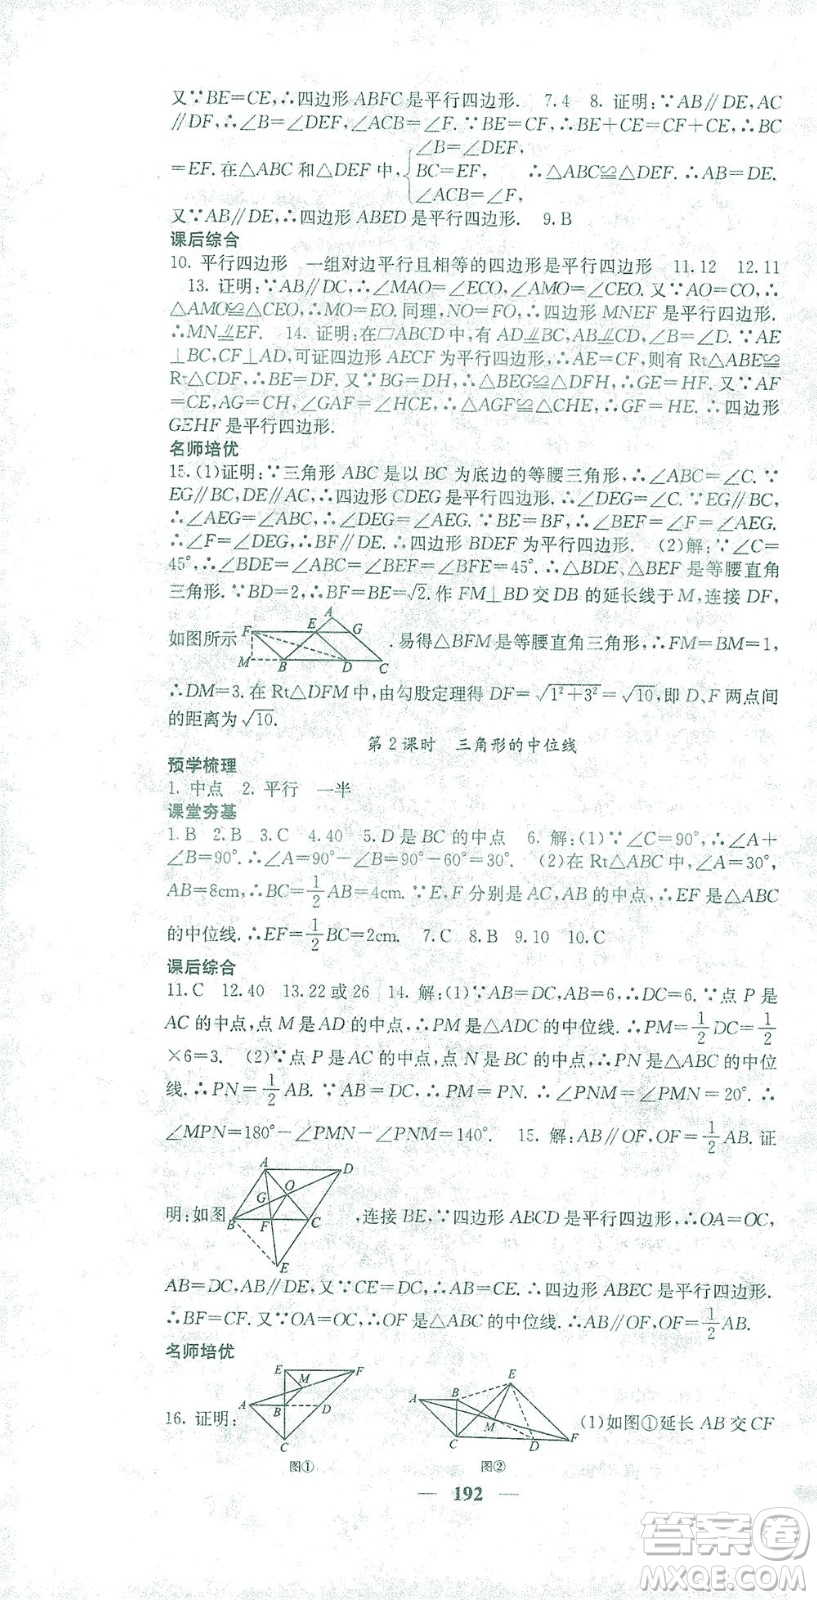 又∵BE=CE,∴四边形 ABFC 是平行四边形. 7.4 8. 证明:∵AB∥DE,AC
∥DF,∴∠B=∠DEF,∠ACB=∠F.∵BE=CF,∴BE+CE=CF+CE,∴BC
=EF. 在△ABC 和△DEF 中, {∠B=∠DEF, BC=EF, ∠ACB=∠F, ∴△ABC≌△DEF. ∴AB=DE.
又∵AB∥DE,∴四边形 ABED 是平行四边形. 9.B
课后综合
10. 平行四边形 一组对边平行且相等的四边形是平行四边形 11.12 12.11
13. 证明:∵AB∥DC,∴∠MAO=∠ECO,∠AMO=∠CEO. 又∵AO=CO,∴
△AMO≌△CEO,∴MO=EO. 同理,NO=FO,∴四边形 MNEF 是平行四边形.
∴MN⫽EF. 14. 证明:在□ABCD 中,有 AD⫽BC,AB=CD,∠B=∠D. ∵AE
⊥BC,CF⊥AD,可证四边形 AECF 为平行四边形,∴AE=CF. 则有 Rt△ABE≌
Rt△CDF,∴BE=DF. 又∵BG=DH,∴△BEG≌△DFH,∴GE=HF. 又∵AF
=CE,AG=CH,∠GAF=∠HCE,∴△AGF≌△CHE,∴GF=HE. ∴四边形
GEHF 是平行四边形.
名师培优
15. (1)证明:∵三角形 ABC 是以 BC 为底边的等腰三角形,∴∠ABC=∠C. ∵
EG∥BC,DE∥AC,∴四边形 CDEG 是平行四边形,∴∠DEG=∠C. ∵EG∥BC,
∴∠AEG=∠ABC,∴∠DEG=∠AEG. ∵BE=BF,∴∠BEF=∠F=∠AEG.
∴∠F=∠DEG,∴BF∥DE. ∴四边形 BDEF 为平行四边形. (2)解:∵∠C=
45°,∴∠BDE=∠ABC=∠BEF=∠BFE=45°. ∴△BDE、△BEF 是等腰直角
三角形. ∵BD=2,∴BF=BE=√2. 作 FM⊥BD 交 DB 的延长线于 M,连接 DF,
如图所示 F E A G M B D C . 易得△BFM 是等腰直角三角形,∴FM=BM=1,
∴DM=3. 在 Rt△DFM 中,由勾股定理得 DF=√1²+3²=√10,即 D、F 两点间
的距离为√10.
第 2 课时 三角形的中位线
预学梳理
1. 中点 2. 平行 一半
课堂夯基
1.B 2.B 3.C 4.40 5.D 是 BC 的中点 6. 解:(1)∵∠C=90°,∴∠A+
∠B=90°. ∴∠A=90°-∠B=90°-60°=30°. (2)在 Rt△ABC 中,∠A=30°,
AB=8cm,∴BC=1/2AB=4cm. ∵E,F 分别是 AC,AB 的中点,∴EF 是△ABC
的中位线. ∴EF=1/2BC=2cm. 7.C 8.B 9.10 10.C
课后综合
11.C 12.40 13.22 或 26 14. 解:(1)∵AB=DC,AB=6,∴DC=6. ∵点 P 是
AC 的中点,点 M 是 AD 的中点,∴PM 是△ADC 的中位线. ∴PM=1/2DC=1/2
×6=3. (2)∵点 P 是 AC 的中点,点 N 是 BC 的中点,∴PN 是△ABC 的中位
线. ∴PN=1/2AB. ∵AB=DC,∴PM=PN. ∴∠PNM=∠PMN=20°. ∴
∠MPN=180°-∠PMN-∠PNM=140°. 15. 解:AB∥OF,OF=1/2AB. 证
明:如图 A D G O B F C E ,连接 BE,∵四边形 ABCD 是平行四边形,∴OA=OC,
AB=DC,AB∥DE,又∵CE=DC,∴AB=CE. ∴四边形 ABEC 是平行四边形.
∴BF=CF. 又∵OA=OC,∴OF 是△ABC 的中位线. ∴AB∥OF,OF=1/2AB.
名师培优
16. 证明: E F M A B D C 图① A B E M C D F 图② (1)如图①延长 AB 交 CF
— 192 —
答案圈
MXQE.COM